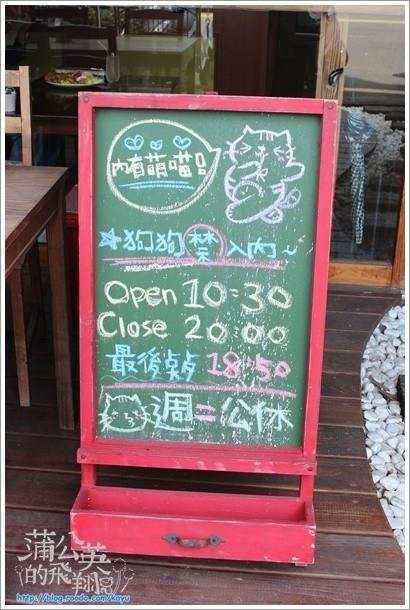 內有萌喵
★狗狗禁入內~
Open 10:30
Close 20:00
最後點 18:50
週二公休
蒲公英
的飛翔
http://blog.roodo.com/kayu